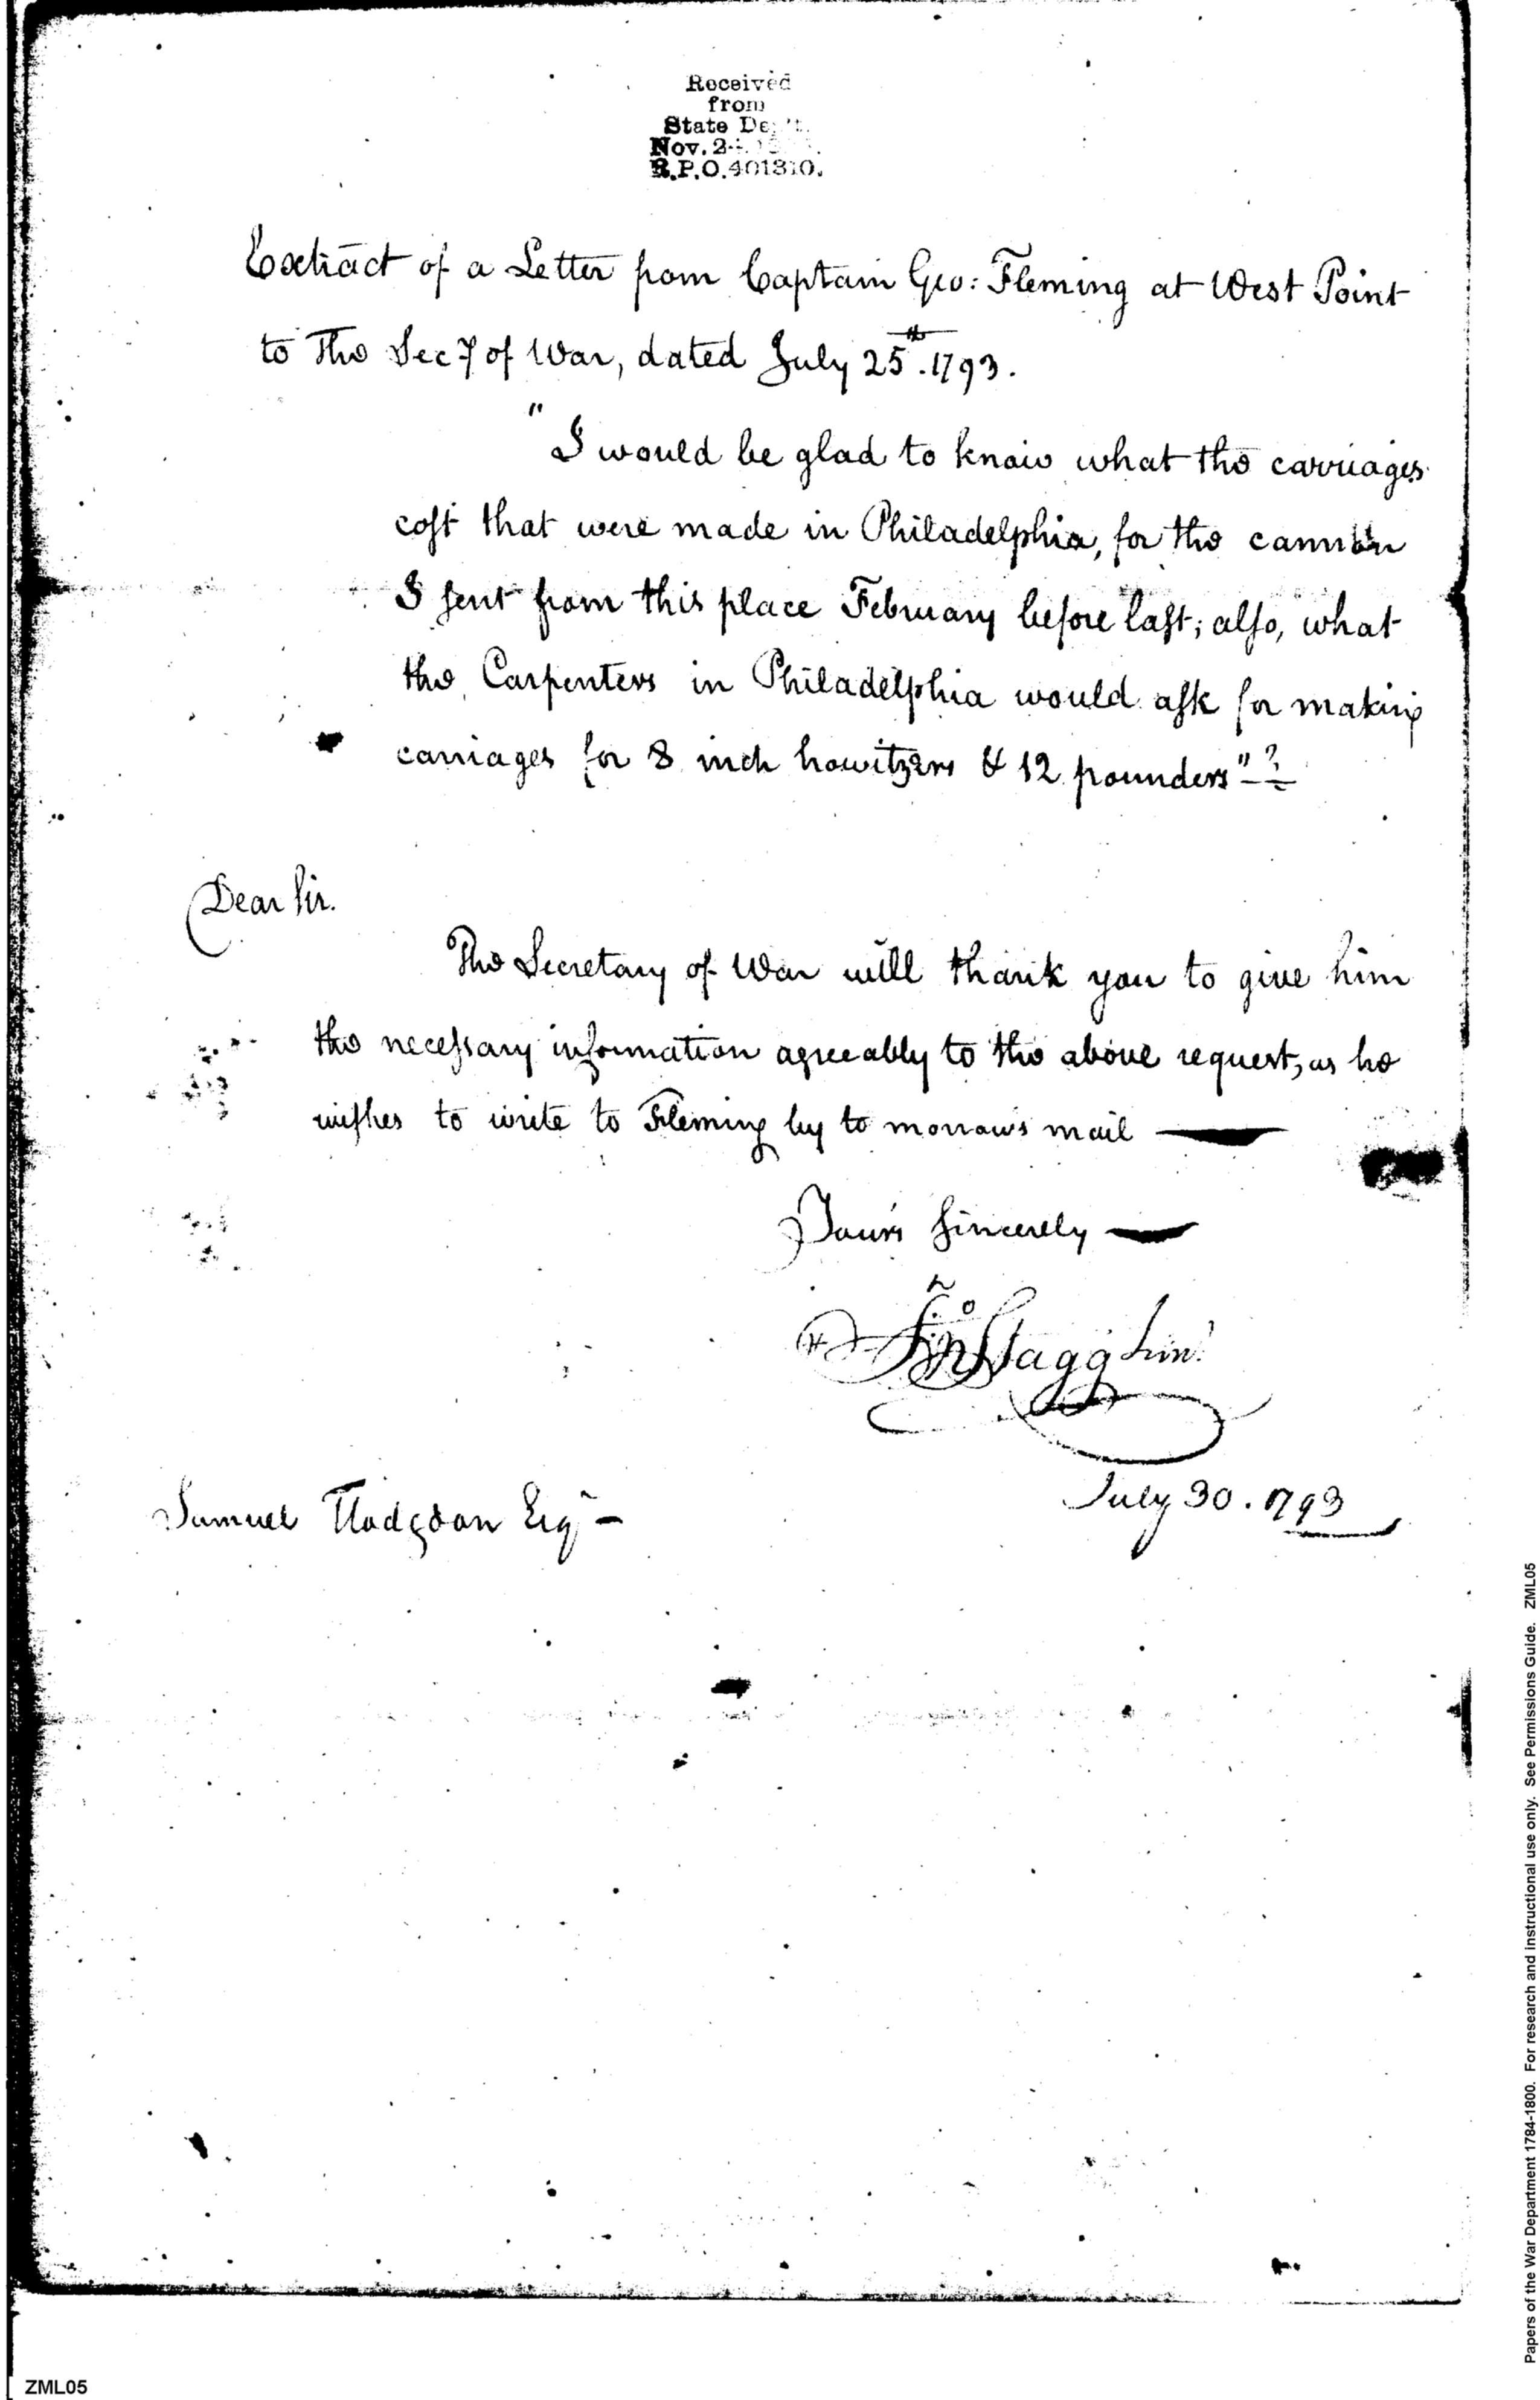 Received
from
State Dept.
Nov. 2
R.P.O. 401310.
Extract of a Letter from Captain Geo: Fleming at West Point
to The Secy of War, dated July 25th. 1793.
"I would be glad to know what the carriages
cost that were made in Philadelphia, for the cannon
I sent from this place February before last; also, what
the Carpenters in Philadelphia would ask for making
carriages for 8 inch howitzers & 12 pounders"?
Dear Sir.
The Secretary of War will thank you to give him
the necessary information agreeably to the above request, as he
wishes to write to Fleming by to morrow's mail
Yours Sincerely
Jno Stagg Junr.
July 30. 1793
Samuel Hodgdon Esqr
Papers of the War Department 1784-1800. For research and instructional use only. See Permissions Guide. ZML05
ZML05